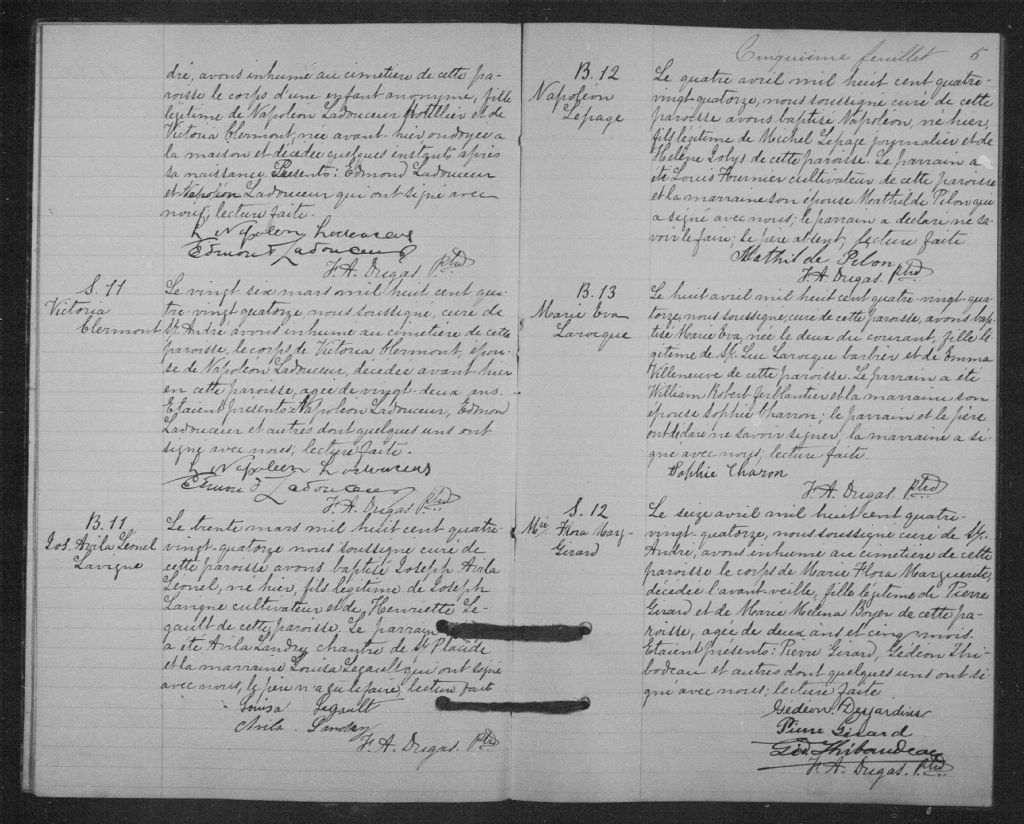 dré, avons inhumé au cimetière de cette pa-
roisse le corps d'une enfant anonyme, fille
légitime de Napoléon Ladouceur hôtellier et de
Victoria Clermont, née avant-hier ondoyée a
la maison et décédée quelques instants après
sa naissance. Présents: Edmond Ladouceur
et Napoléon Ladouceur qui ont signé avec
nous; lecture faite.
L Napoleon Ladouceur
Edmond Ladouceur
F. A. Dugas Ptre
S. 11
Victoria
Clermont
Le vingt six mars mil huit cent qua-
tre-vingt quatorze, nous soussigné, curé de
St. André avons inhumé au cimetière de cette
paroisse, le corps de Victoria Clermont, épou-
se de Napoléon Ladouceur, décédée avant hier
en cette paroisse, agée de vingt-deux ans.
Etaient présents: Napoléon Ladouceur, Edmon
Ladouceur et autres dont quelques uns ont
signé avec nous; lecture faite.
L Napoleon Ladouceur
Edmond Ladouceur
F. A. Dugas Ptre
B. 11
Jos. Avila Léonel
Lavigne
Le trente mars mil huit cent quatre-
vingt-quatorze nous soussigné curé de
cette paroisse avons baptisé Joseph Avila
Léonel, né hier, fils légitime de Joseph
Lavigne cultivateur et de Henriette Le-
gault de cette paroisse. Le parrain
a été Avila Landry chantre de St. Placide
et la marraine Louisa Legault qui ont signé
avec nous, le père n'a su le faire, lecture fait
Louisa Legault
Avila Landry
F. A. Dugas. Ptre
Cinquième feuillet 5
B. 12
Napoléon
Lepage
Le quatre avril mil huit cent quatre-
vingt-quatorze, nous soussigné curé de cette
paroisse avons baptisé Napoléon, né hier,
fils légitime de Michel Lepage journalier et de
Hélène de cette paroisse. Le parrain a
été Louis Fournier cultivateur de cette paroisse
et la marraine son épouse Mathilde Pilon qui
a signé avec nous; le parrain a déclaré ne sa-
voir le faire; le père absent; lecture faite
Mathilde Pilon
F. A. Dugas Ptre
B. 13
Marie Eva
Larocque
Le huit avril mil huit cent quatre-vingt-qua-
torze, nous soussigné, curé de cette paroisse, avons bap-
tisé Marie Eva, née le deux du courant, fille lé-
gitime de Luc Larocque barbier et de Emma
Villeneuve de cette paroisse. Le parrain a été
William Robert ferblantier et la marraine son
épouse Sophie Charron; le parrain et le père
ont déclaré ne savoir signer, la marraine a si-
gné avec nous; lecture faite.
Sophie Charon
F. A. Dugas Ptre
S. 12
Mie Flora Marg-
Girard
Le seize avril mil huit cent quatre-
vingt-quatorze, nous soussigné curé de St.
André, avons inhumé au cimetière de cette
paroisse le corps de Marie Flora Marguerite,
décédée l'avant-veille, fille légitime de Pierre
Girard et de Marie Mélina Boyer de cette pa-
roisse, agée de deux ans et cinq mois.
Etaient présents: Pierre Girard, Gédéon Thi-
bodeau et autres dont quelques uns ont si-
gné avec nous; lecture faite
Gédéon Desjardins
Pierre Girard
Ged. Thibaudeau
F. A. Dugas. Ptre